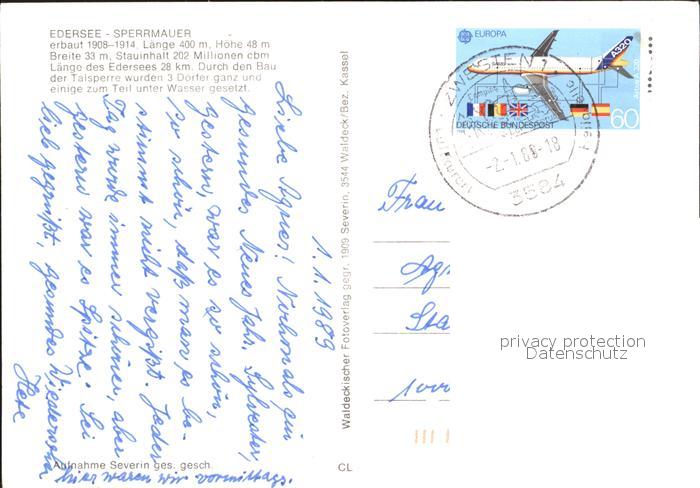 EDERSEE - SPERRMAUER
erbaut 1908-1914, Länge 400 m, Höhe 48 m
Breite 33 m, Stauinhalt 202 Millionen cbm
Länge des Edersees 28 km. Durch den Bau
der Talsperre wurden 3 Dörfer ganz und
einige zum Teil unter Wasser gesetzt.
1.1.1989
Liebe Agnes! Nochmals ein
gesundes Neues Jahr. Sylvester,
gestern, war es so schön,
so schön, daß man es be-
stimmt nicht vergißt. Jeder
Tag wurde immer schöner, aber
gestern war es Spitze. Sei
lieb gegrüßt, gesundes Wiedersehn
Hete
hier waren wir vormittags.
Aufnahme Severin ges. gesch.
CL
Waldeckischer Fotoverlag gegr. 1909 Severin, 3544 Waldeck/Bez. Kassel
EUROPA
A320
Airbus A 320
DEUTSCHE BUNDESPOST
60
ZWESTEN 1
-2.-1.89-18
3584
Luftkurort
Frau
Agn
Sta
1000
privacy protection
Datenschutz